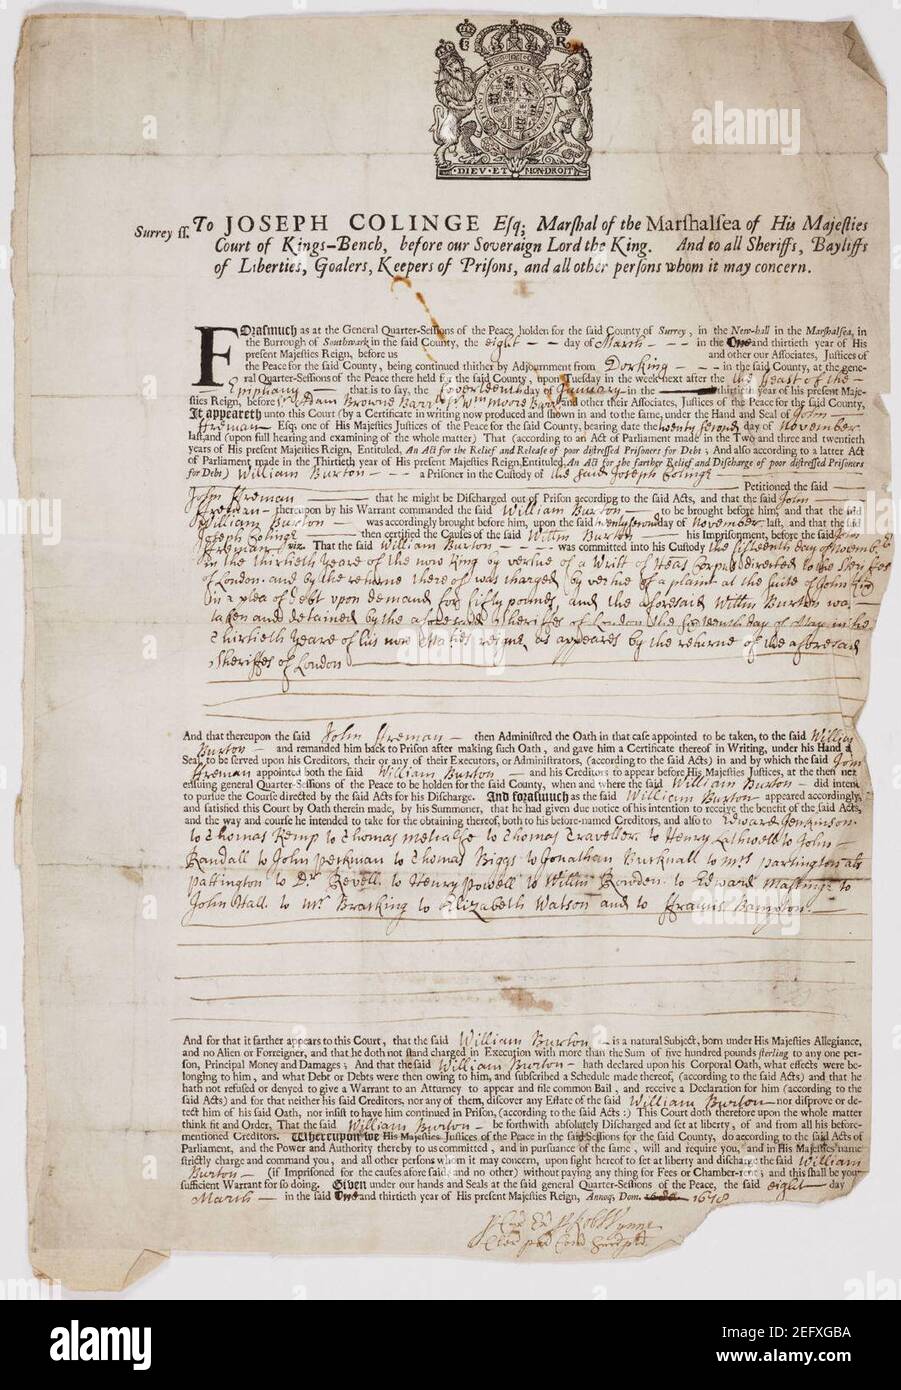 C R
DIEV·ET MON·DROIT
Surrey ss. To JOSEPH COLINGE Esq; Marshal of the Marshalsea of His Majesties
Court of Kings-Bench, before our Soveraign Lord the King. And to all Sheriffs, Bayliffs
of Liberties, Goalers, Keepers of Prisons, and all other persons whom it may concern.
FOrasmuch as at the General Quarter-Sessions of the Peace holden for the said County of Surrey, in the New-hall in the Marshalsea, in
the Burrough of Southwark in the said County, the eight day of March in the One and thirtieth year of His
present Majesties Reign, before us and other our Associates, Justices of
the Peace for the said County, being continued thither by Adjournment from Dorking in the said County, at the gene-
ral Quarter-Sessions of the Peace there held for the said County, upon Tuesday in the week next after the the feast of the
Epiphany that is to say, the day of January in the thirtieth year of his present Maje-
sties Reign, before Adam Browne Barr and other their Associates, Justices of the Peace for the said County,
It appeareth unto this Court (by a Certificate in writing now produced and shown in and to the same, under the Hand and Seal of John
ffreman Esq; one of His Majesties Justices of the Peace for the said County, bearing date the twenty second day of November
last, and (upon full hearing and examining of the whole matter) That (according to an Act of Parliament made in the Two and three and twentieth
years of His present Majesties Reign, Entituled, An Act for the Relief and Release of poor distressed Prisoners for Debt; And also according to a latter Act
of Parliament made in the Thirtieth year of His present Majesties Reign, Entituled, An Act for the farther Relief and Discharge of poor distressed Prisoners
for Debt) William Burton a Prisoner in the Custody of the said Joseph Colinge
Petitioned the said
John ffreman that he might be Discharged out of Prison according to the said Acts, and that the said John
ffreman thereupon by his Warrant commanded the said William Burton to be brought before him, and that the said
William Burton was accordingly brought before him, upon the said twenty second day of November last, and that the said
Joseph Colinge then certified the Causes of the said Willm Burton his Imprisonment, before the said John
ffreman viz. That the said William Burton was committed into his Custody the fifteenth day of Novemb
in the thirtieth yeare of the now King by vertue of a Writt of Heas Corpus directed to the Sheriffes
of London and by the returne thereof was charged by vertue of a plaint at the suite of John
in a plea of debt upon demand for fifty pounds, and the aforesaid Willm Burton was
taken and detained by the aforesaid Sheriffes of London the day of May in the
thirtieth yeare of his now Maties reigne, as appeares by the returne of the aforesaid
Sheriffes of London
And that thereupon the said John ffreman then Administred the Oath in that case appointed to be taken, to the said William
Burton and remanded him back to Prison after making such Oath, and gave him a Certificate thereof in Writing, under his Hand a
Seal, to be served upon his Creditors, their or any of their Executors, or Administrators, (according to the said Acts) in and by which the said John
ffreman appointed both the said William Burton and his Creditors to appear before His Majesties Justices, at the then nex
ensuing general Quarter-Sessions of the Peace to be holden for the said County, when and where the said William Burton did intent
to pursue the Course directed by the said Acts for his Discharge. And forasmuch as the said William Burton appeared accordingly,
and satisfied this Court by Oath therein made, by his Summoner, that he had given due notice of his intention to receive the benefit of the said Acts,
and the way and course he intended to take for the obtaining thereof, both to his before-named Creditors, and also to Edward Jenkinson.
to Thomas Kemp to Thomas Metcalfe to Thomas Traveller. to Henry Lithwell to John
Randall to John Perkman to Thomas Biggs to Jonathan Bucknall to Mrs Partington als
Pattington to Dr. Revell. to Henry Powell to Willm Rowden. to Edward to
John Hall. to Mr Brasking to Elizabeth Watson and to ffrancis Bampton.
And for that it farther appears to this Court, that the said William Burton is a natural Subject, born under His Majesties Allegiance,
and no Alien or Forreigner, and that he doth not stand charged in Execution with more than the Sum of five hundred pounds sterling to any one per-
son, Principal Money and Damages; And that the said William Burton hath declared upon his Corporal Oath, what effects were be-
longing to him, and what Debt or Debts were then owing to him, and subscribed a Schedule made thereof, (according to the said Acts) and that he
hath not refused or denied to give a Warrant to an Attorney to appear and file common Bail, and receive a Declaration for him (according to the
said Acts) and for that neither his said Creditors, nor any of them, discover any Estate of the said William Burton nor disprove or de-
tect him of his said Oath, nor insist to have him continued in Prison, (according to the said Acts:) This Court doth therefore upon the whole matter
think fit and Order, That the said William Burton be forthwith absolutely Discharged and set at liberty, of and from all his before-
mentioned Creditors. Whereupon we His Majesties Justices of the Peace in the said Sessions for the said County, do according to the said Acts of
Parliament, and the Power and Authority thereby to us committed, and in pursuance of the same, will and require you, and in His Majesties name
strictly charge and command you, and all other persons whom it may concern, upon sight hereof to set at liberty and discharge the said William
Burton (if Imprisoned for the causes aforesaid, and no other) without paying any thing for Fees or Chamber-rent; and this shall be your
sufficient Warrant for so doing. Given under our hands and Seals at the said general Quarter-Sessions of the Peace, the said eight day
March in the said One and thirtieth year of His present Majesties Reign, Annoq; Dom. 1678
Wynne
alamy
Image ID: 2EFXGBA
www.alamy.com